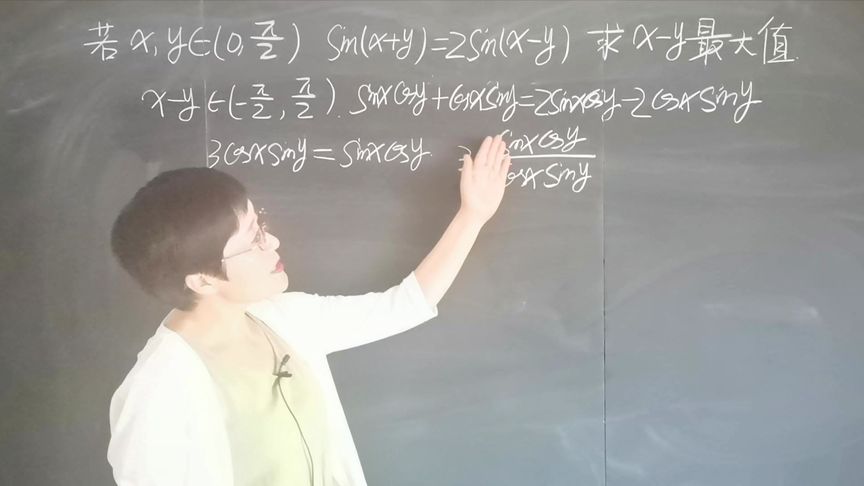 若 x, y∈(0, π/2) Sin(x+y)=2Sin(x-y) 求 x-y 最大值.
x-y∈(-π/2, π/2). Sinxcosy+cosxSiny=2Sinxcosy-2cosxSiny
3cosxSiny=Sinxcosy. Sinxcosy/cosxSiny